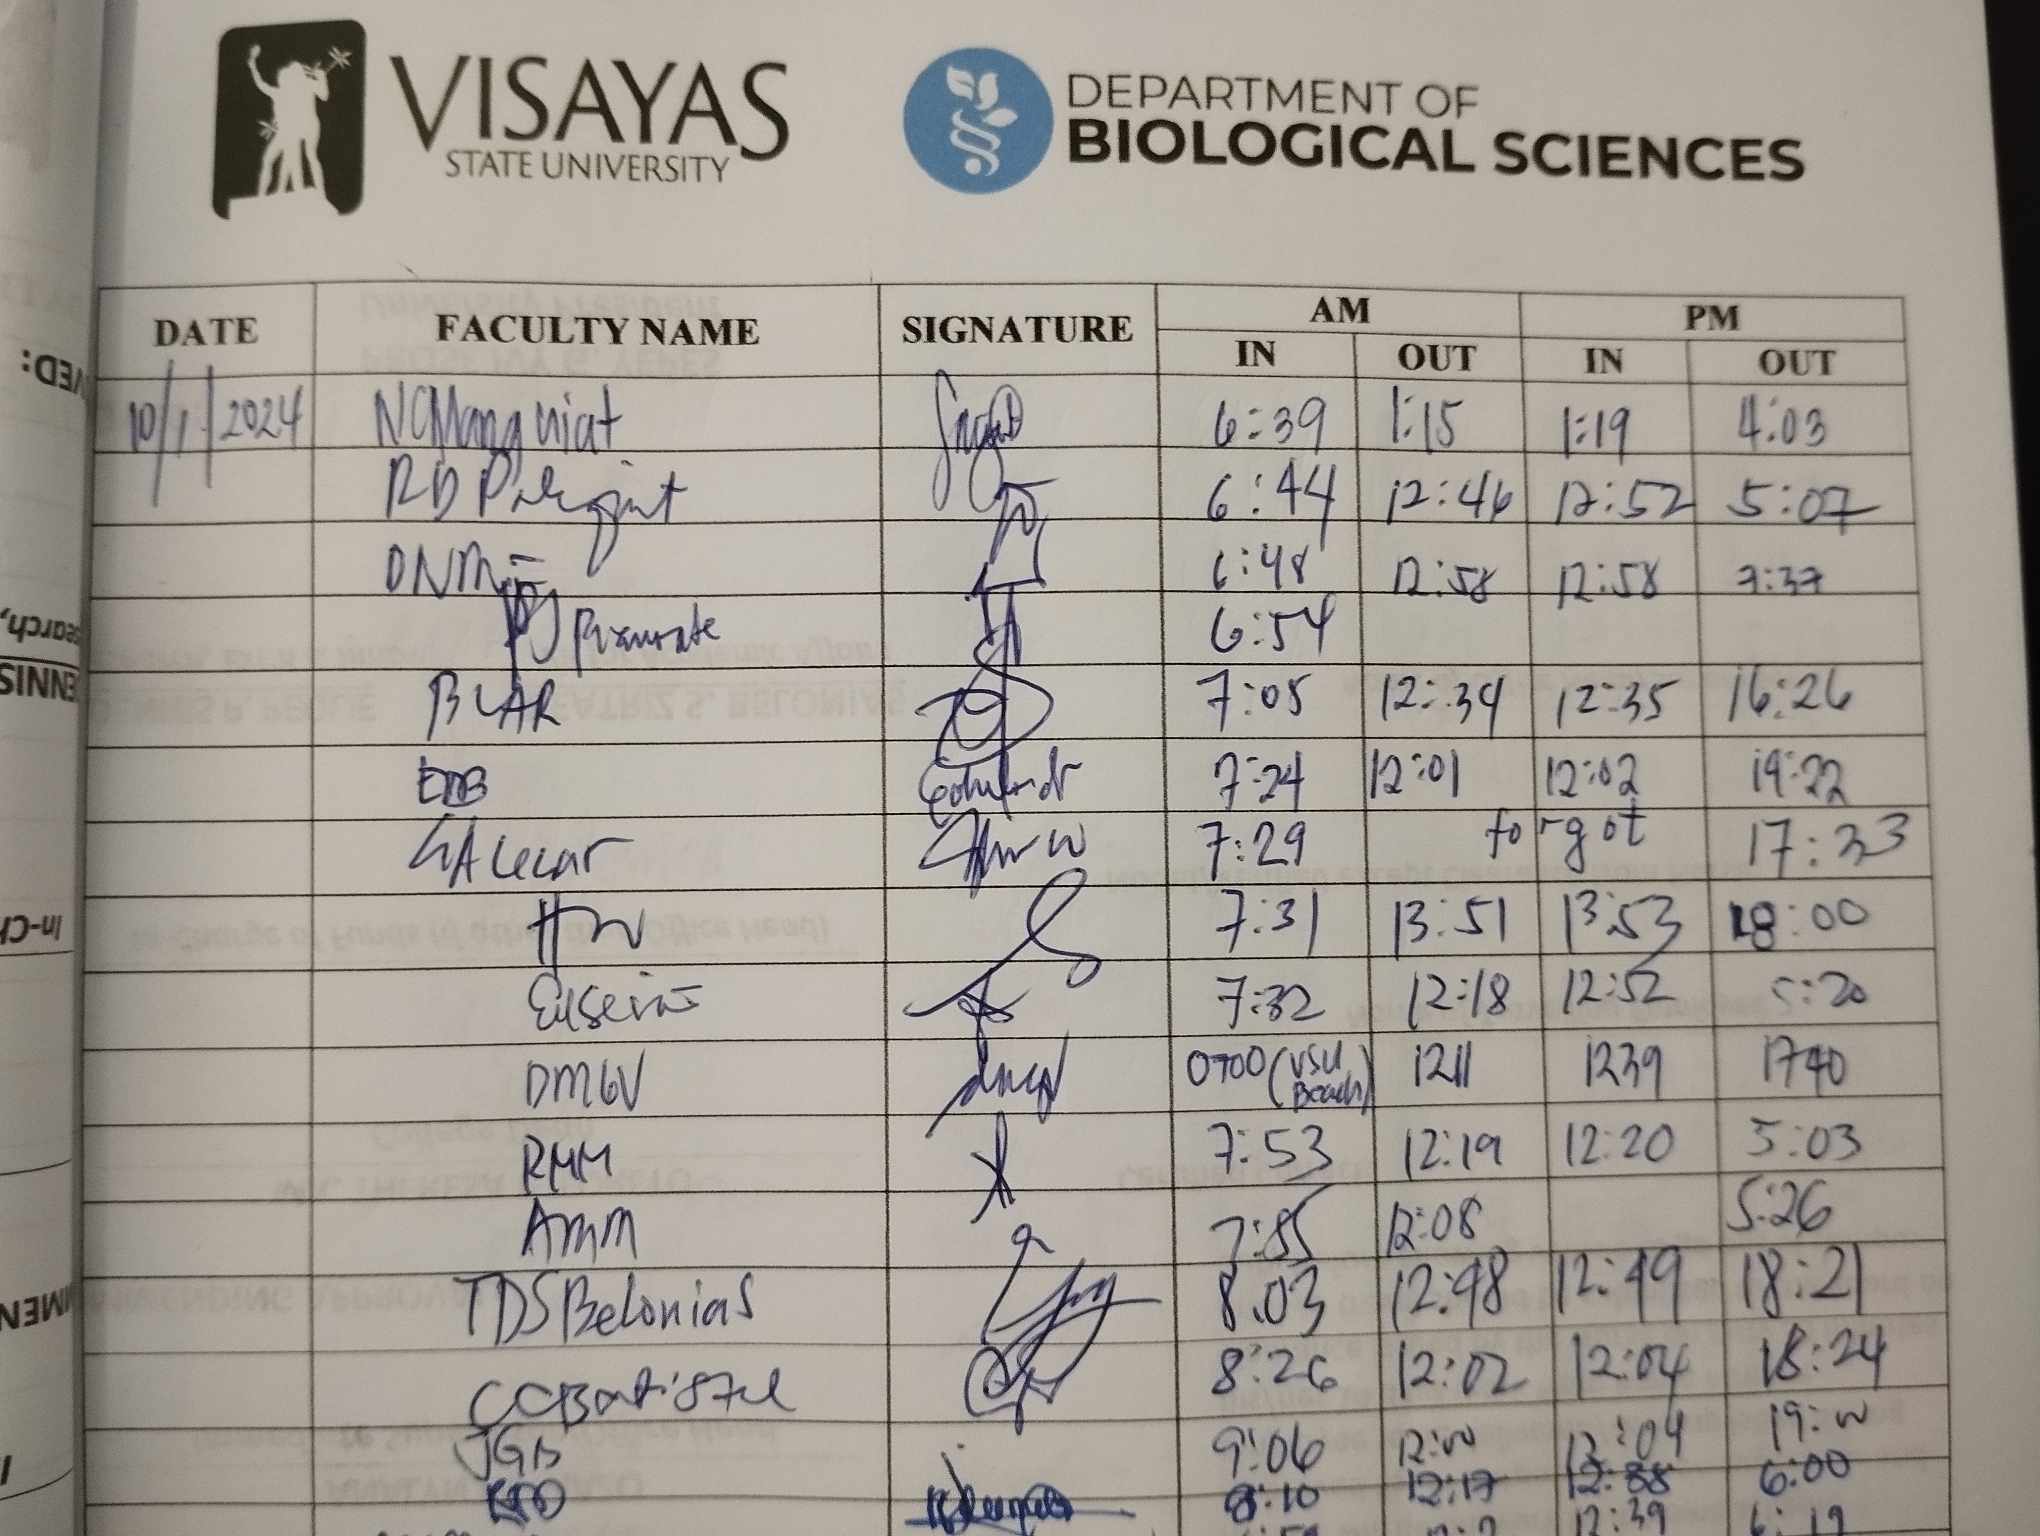 VISAYAS
STATE UNIVERSITY
DEPARTMENT OF
BIOLOGICAL SCIENCES
DATE FACULTY NAME SIGNATURE AM PM
IN OUT IN OUT
10/1/2024 NCMangguiat 6:39 1:15 1:19 4:03
RD 6:44 12:46 12:52 5:07
6:48 12:58 12:58 7:37
6:54
BLAR 7:05 12:34 12:35 16:26
EDB 7:24 12:01 12:02 19:22
7:29 forgot 17:33
7:31 13:51 13:53 18:00
Eusevio 7:32 12:18 12:52 5:20
DMGV 0700 (VSU Beach) 1211 1239 1740
RMM 7:53 12:19 12:20 5:03
AMM 7:55 12:08 5:26
TDSBelonias 8:03 12:48 12:49 18:21
CCBatistel 8:26 12:02 12:04 18:24
JGB 9:06 12:04
8:10 12:17 12:38 6:00
12:39 6:19